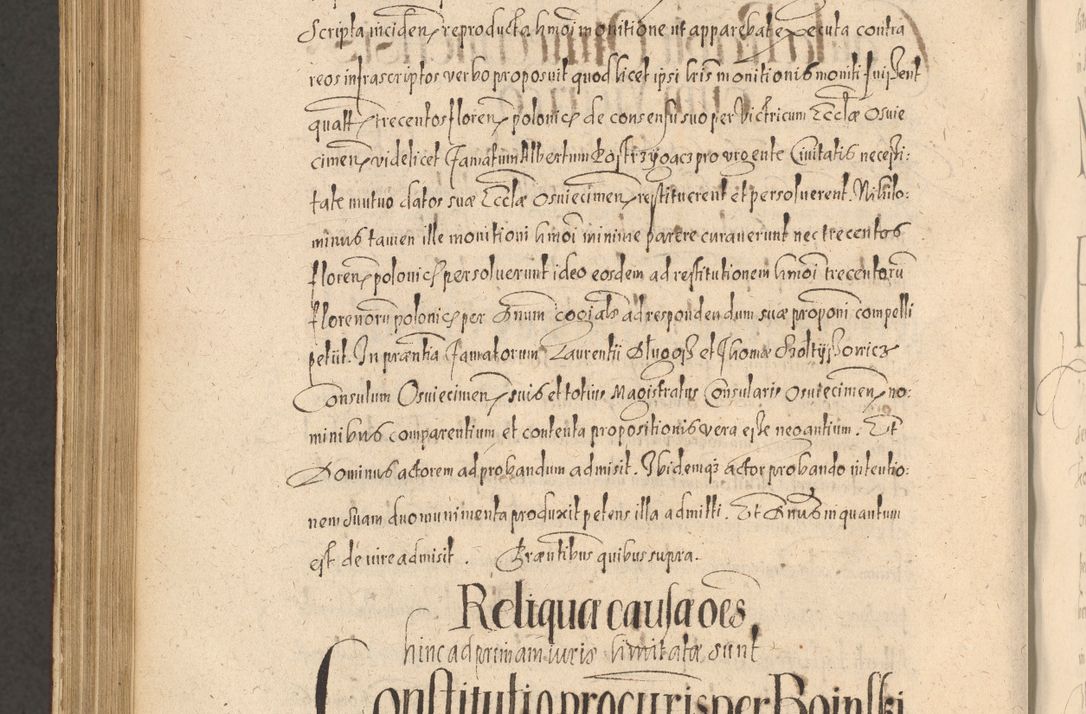 Scripta in ciden, reproducta hmoi monitione ut apparebat executa contra
reos infrascriptos verbo proposuit quod licet ipsi lris monitionis moniti fuissent
quatt, trecentos floren, polonic, de consensu suo per Victricum Eccłæ Osvie
cimen, videlicet famatum Albertum pro urgente Civitatis necessi:
tate mutuo datos suæ Eccłæ Osviecimen, restituerent et persolverent. Nihilo:
minus tamen ille monitioni hmoi minime parere curaverunt nec trecentos
floren, polonic, persolverunt ideo eosdem ad restitutionem hmoi trecentorū
florenorū polonic, per Dnum ad respondendum suæ proponi compelli
petiit. In præntia famatorum Laurentii Długosz et Thomæ
Consulum Osviecimen, suis et totius Magistratus Consularis Osviecimen, no:
minibus comparentium et contenta propositionis vera esse negantium. Et
Dominus actorem ad probandum admisit. Ibidemq3 actor probando intentio:
nem suam duo munimenta produxit petens illa admitti. Et Dnus in quantum
est de iure admisit. Præntibus quibus supra.
Reliqua causa oēs
hinc ad primam iuris limitatæ sunt
Constitutio procuris per Boinski